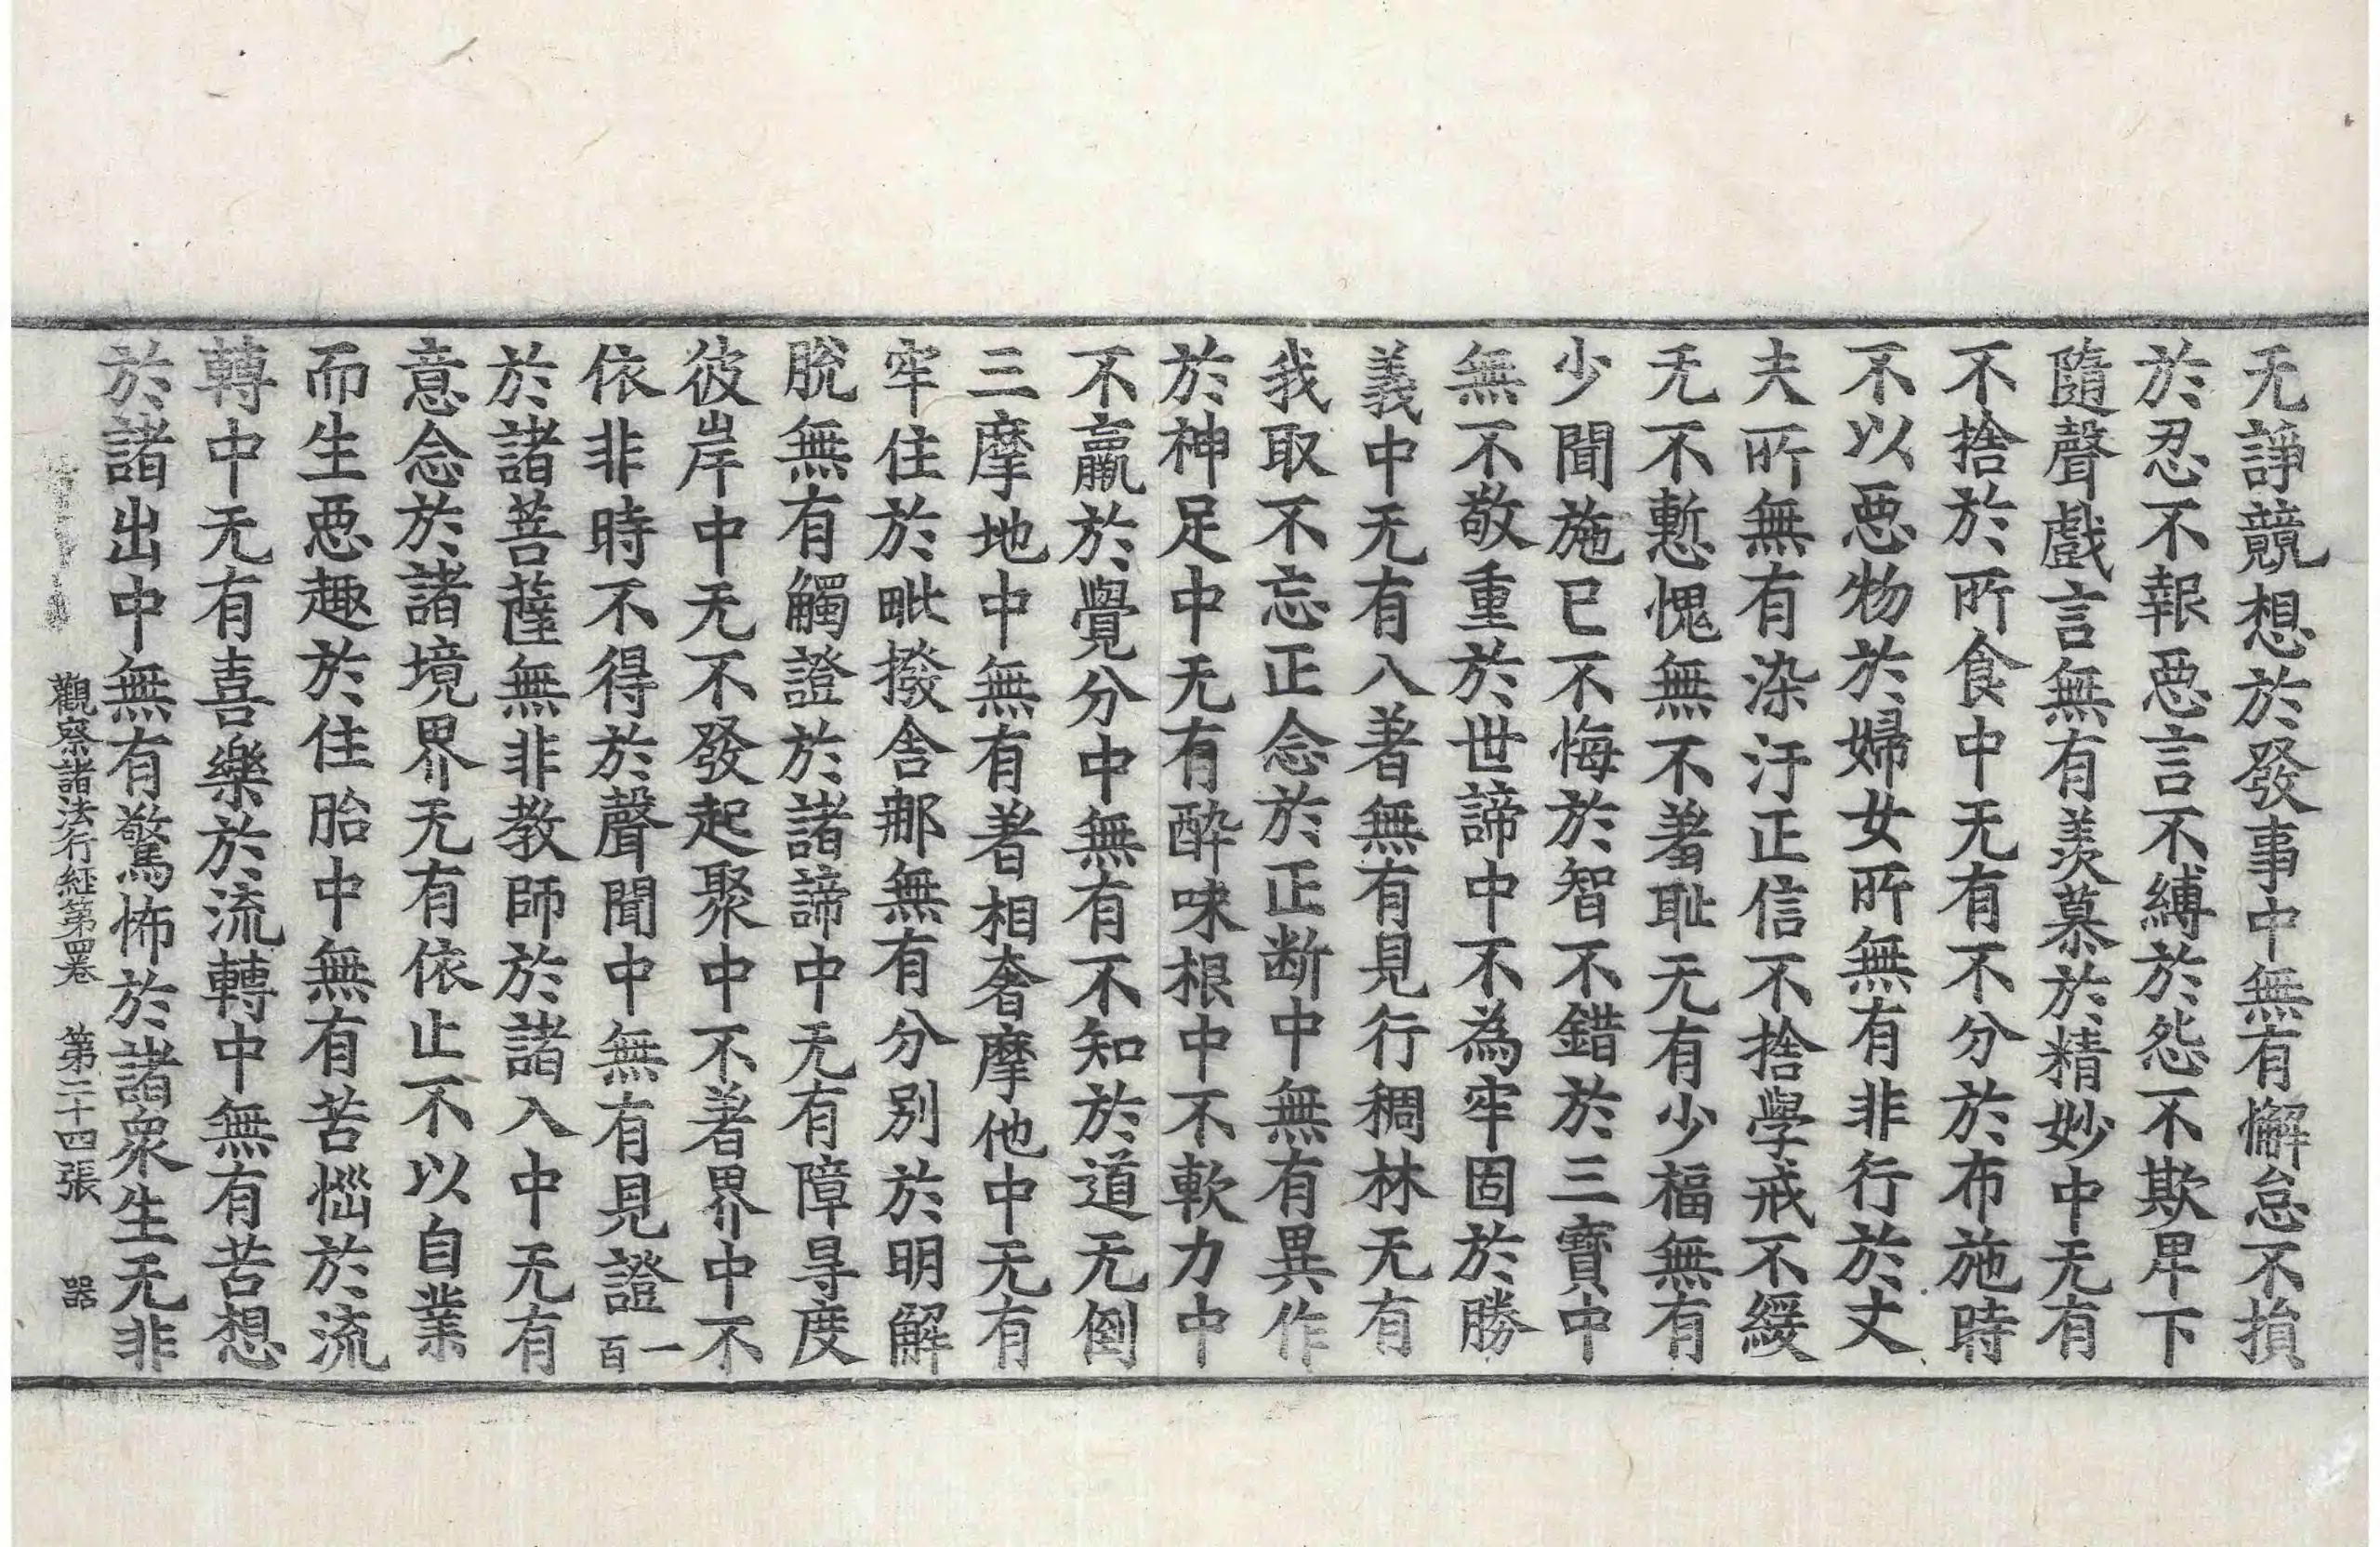 无諍競想於發事中無有懈怠不損
於忍不報惡言不縛於怨不欺卑下
隨聲戲言無有羨慕於精妙中无有
不捨於所食中无有不分於布施時
不以惡物於婦女所無有非行於丈
夫所無有染汙正信不捨學戒不緩
无不慙愧無不羞恥无有少福無有
少聞施已不悔於智不錯於三寶中
無不敬重於世諦中不為牢固於勝
義中无有八著無有見行稠林无有
我取不忘正念於正断中無有異作
於神足中无有醉味根中不軟力中
不羸於覺分中無有不知於道无倒
三摩地中無有著相奢摩他中无有
牢住於毗撥舍那無有分別於明解
脫無有觸證於諸諦中无有障㝵度
彼岸中无不發起聚中不著界中不
依非時不得於聲聞中無有見證一百
於諸菩薩無非教師於諸入中无有
意念於諸境界无有依止不以自業
而生惡趣於住胎中無有苦惱於流
轉中无有喜樂於流轉中無有苦想
於諸出中無有驚怖於諸衆生无非
觀察諸法行經第四卷 第二十四張 器